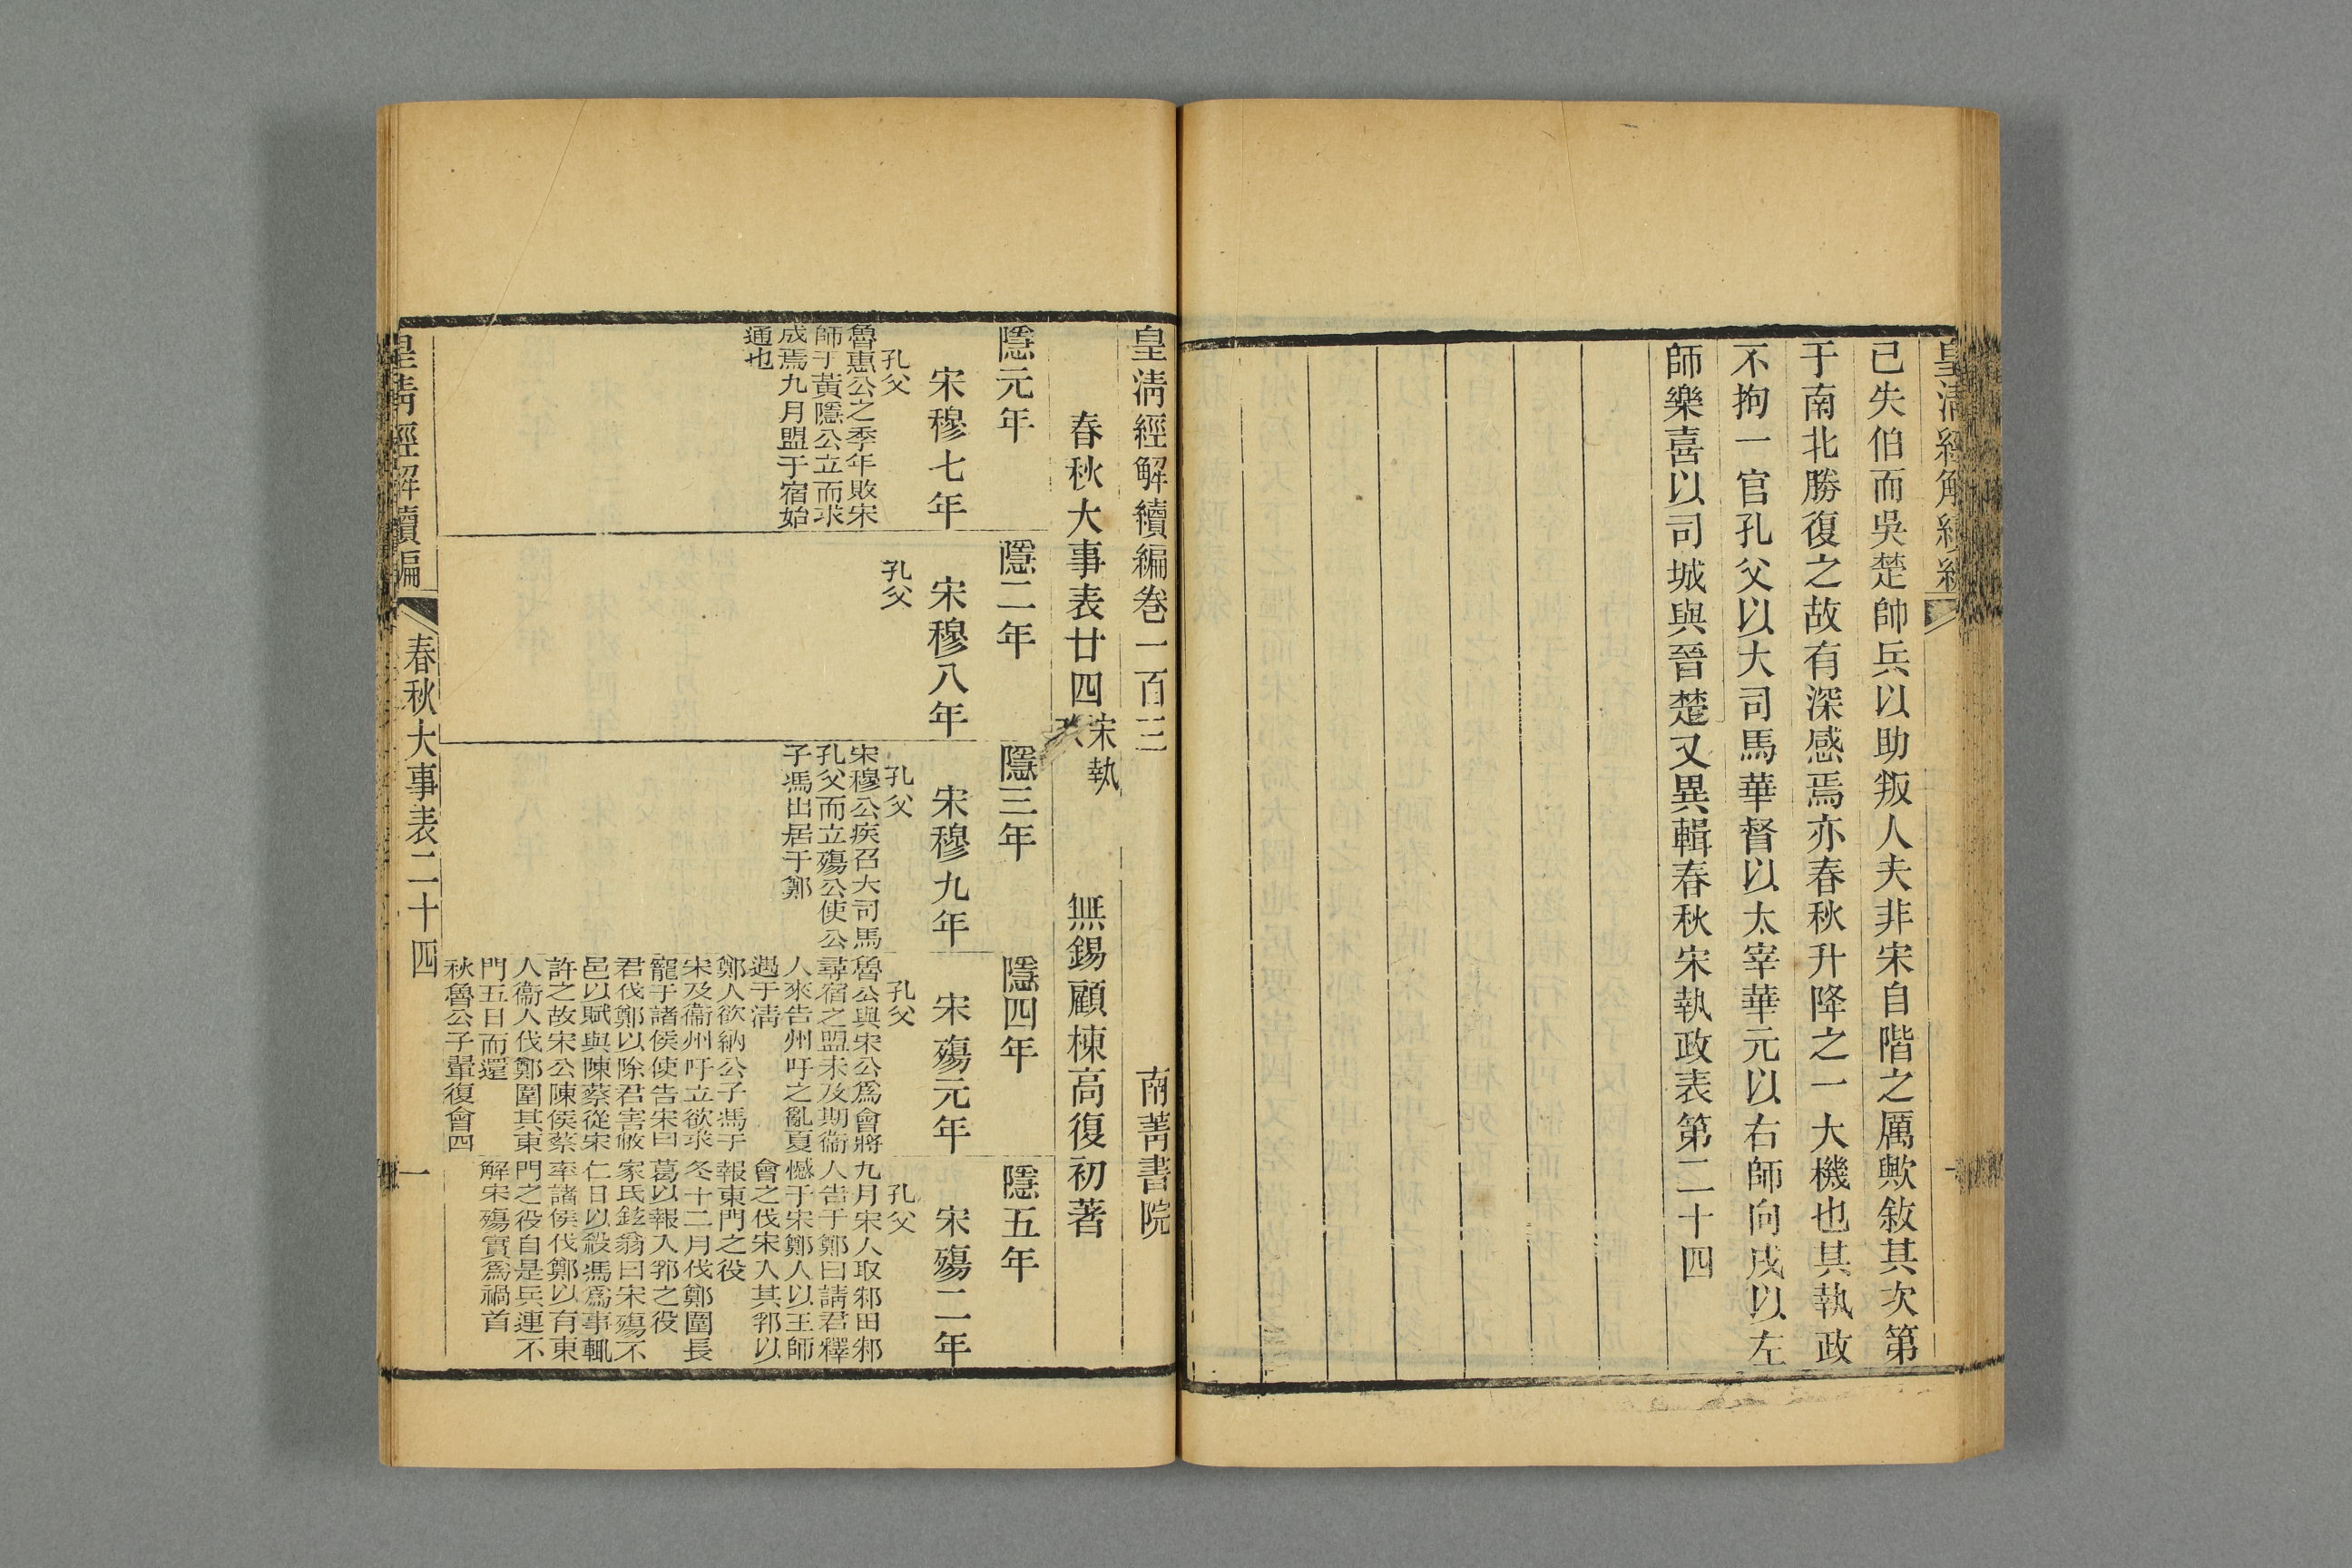 已失伯而吳楚帥兵以助叛人夫非宋自階之厲歟敘其次第
于南北勝復之故有深感焉亦春秋升降之一大機也其執政
不拘一官孔父以大司馬華督以太宰華元以右師向戌以左
師樂喜以司城與晉楚又異輯春秋宋執政表第二十四
皇淸經解續編卷一百三
南菁書院
春秋大事表廿四
宋執
無錫顧棟高復初著
隱元年
宋穆七年
孔父
魯惠公之季年敗宋
師于黃隱公立而求
成焉九月盟于宿始
通也
隱二年
宋穆八年
孔父
隱三年
宋穆九年
孔父
宋穆公疾召大司馬
孔父而立殤公使公
子馮出居于鄭
隱四年
宋殤元年
孔父
魯公與宋公爲會將
尋宿之盟未及期衞
人來告州吁之亂夏
遇于淸
鄭人欲納公子馮于
宋及衞州吁立欲求
寵于諸侯使告宋曰
君伐鄭以除君害敝
邑以賦與陳蔡從宋
許之故宋公陳侯蔡
人衞人伐鄭圍其東
門五日而還
秋魯公子翬復會四
隱五年
宋殤二年
孔父
九月宋人取邾田邾
人告于鄭曰請君釋
憾于宋鄭人以王師
會之伐宋入其郛以
報東門之役
冬十二月伐鄭圍長
葛以報入郛之役
家氏鉉翁曰宋殤不
仁日以殺馮爲事輒
率諸侯伐鄭以有東
門之役自是兵連不
解宋殤實爲禍首
皇淸經解續編
春秋大事表二十四
一